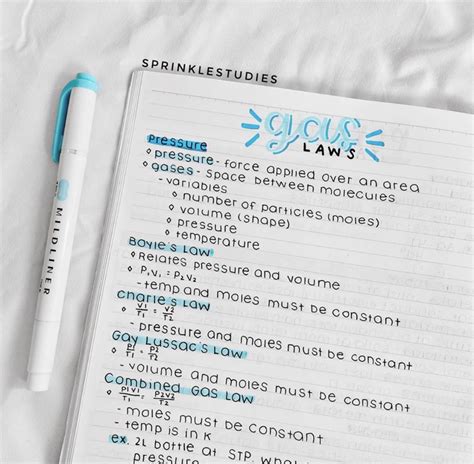 SPRINKLESTUDIES
gas
LAWS
Pressure
◊ pressure - force applied over an area
◊ gases - space between molecules
- variables
◊ number of particles (moles)
◊ volume (shape)
◊ pressure
◊ temperature
Boyle's Law
◊ Relates pressure and volume
◊ P₁V₁ = P₂V₂
- temp and moles must be constant
Charle's Law
◊ V1/T1 = V2/T2
- pressure and moles must be constant
Gay Lussac's Law
◊ P1/T1 = P2/T2
- volume and moles must be constant
Combined Gas Law
◊ P1V1/T1 = P2V2/T2
- moles must be constant
- temp is in K
ex. 2L bottle at STP, what
pressure
MILDLINER